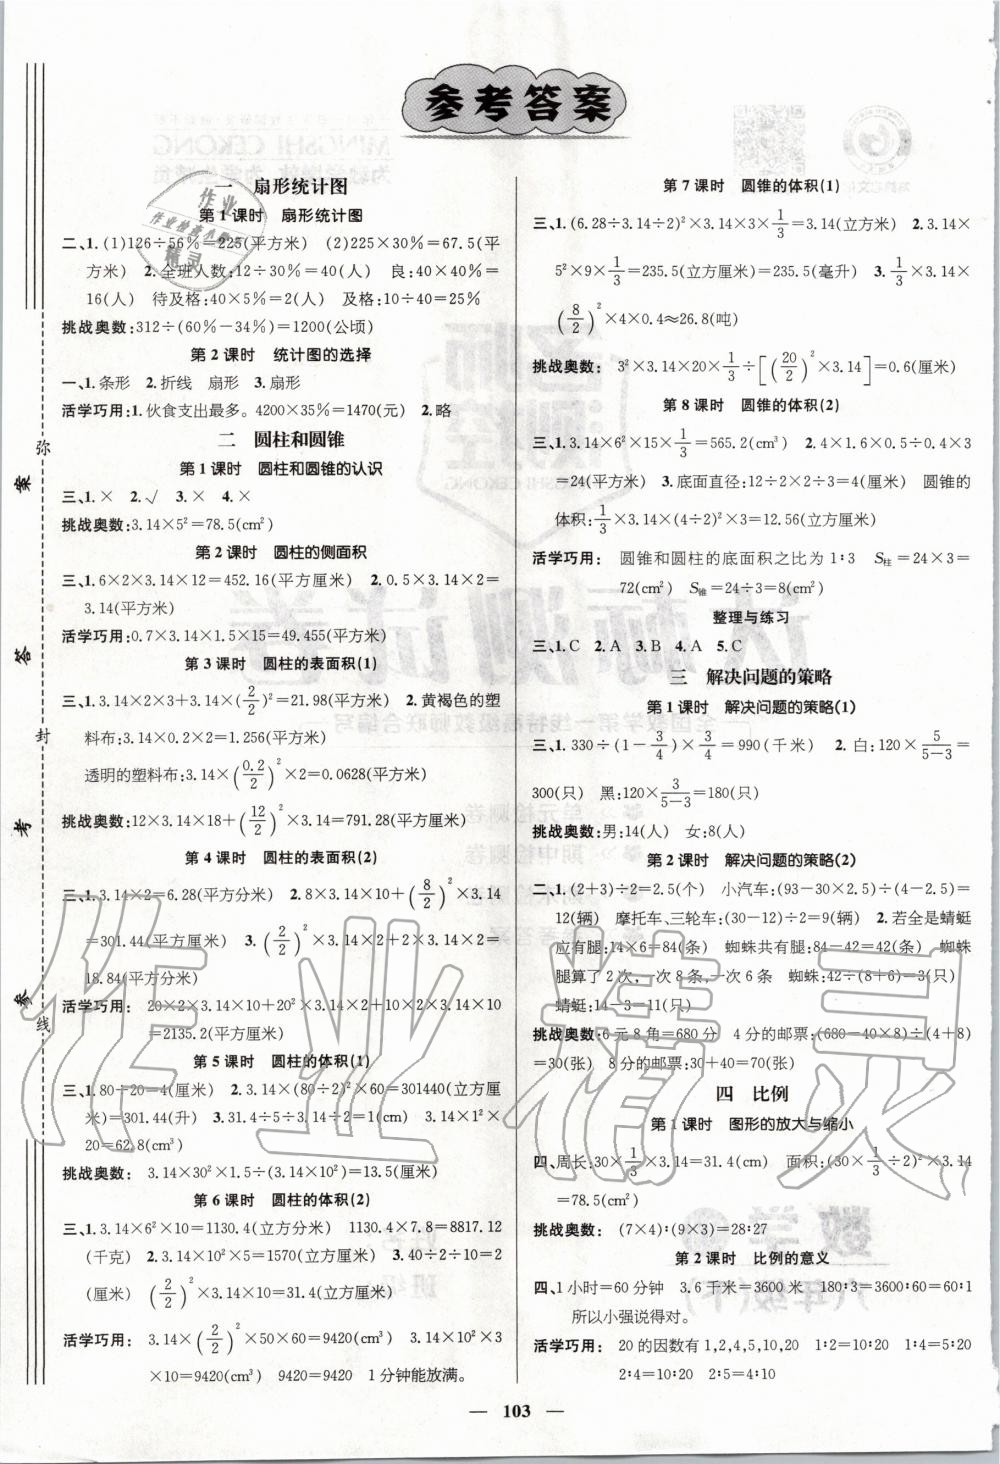 参考答案
一 扇形统计图
第1课时 扇形统计图
二、1.(1)126÷56%=225(平方米) (2)225×30%=67.5(平
方米) 2.全班人数:12÷30%=40(人) 良:40×40%=
16(人) 待及格:40×5%=2(人) 及格:10÷40=25%
挑战奥数:312÷(60%-34%)=1200(公顷)
第2课时 统计图的选择
一、1.条形 2.折线 扇形 3.扇形
活学巧用:1.伙食支出最多。4200×35%=1470(元) 2.略
二 圆柱和圆锥
第1课时 圆柱和圆锥的认识
三、1.× 2.√ 3.× 4.×
挑战奥数:3.14×5²=78.5(cm²)
第2课时 圆柱的侧面积
三、1.6×2×3.14×12=452.16(平方厘米) 2.0.5×3.14×2=
3.14(平方米)
活学巧用:0.7×3.14×1.5×15=49.455(平方米)
第3课时 圆柱的表面积(1)
三、1.3.14×2×3+3.14×(2/2)²=21.98(平方米) 2.黄褐色的塑
料布:3.14×0.2×2=1.256(平方米)
透明的塑料布:3.14×(0.2/2)²×2=0.0628(平方米)
挑战奥数:12×3.14×18+(12/2)²×3.14=791.28(平方厘米)
第4课时 圆柱的表面积(2)
三、1.3.14×2=6.28(平方分米) 2.8×3.14×10+(8/2)²×3.14
=301.44(平方厘米) 3.(2/2)²×3.14×2+2×3.14×2=
18.84(平方分米)
活学巧用: 20×2×3.14×10+20²×3.14×2+10×2×3.14×10
=2135.2(平方厘米)
第5课时 圆柱的体积(1)
三、1.80÷20=4(厘米) 2.3.14×(80÷2)²×60=301440(立方厘
米)=301.44(升) 3.31.4÷5÷3.14÷2=1(cm) 3.14×1²×
20=62.8(cm³)
挑战奥数: 3.14×30²×1.5÷(3.14×10²)=13.5(厘米)
第6课时 圆柱的体积(2)
三、1.3.14×6²×10=1130.4(立方分米) 1130.4×7.8=8817.12
(千克) 2.3.14×10²×5=1570(立方厘米) 3.40÷2÷10=2
(厘米) (2/2)²×3.14×10=31.4(立方厘米)
活学巧用: 3.14×(2/2)²×50×60=9420(cm³) 3.14×10²×3
×10=9420(cm³) 9420=9420 1分钟能放满。
第7课时 圆锥的体积(1)
三、1.(6.28÷3.14÷2)²×3.14×3×1/3=3.14(立方米) 2.3.14×
5²×9×1/3=235.5(立方厘米)=235.5(毫升) 3.1/3×3.14×
(8/2)²×4×0.4≈26.8(吨)
挑战奥数: 3²×3.14×20×1/3÷[(20/2)²×3.14]=0.6(厘米)
第8课时 圆锥的体积(2)
三、1.3.14×6²×15×1/3=565.2(cm³) 2.4×1.6×0.5÷0.4×3
=24(平方米) 3.底面直径:12÷2×2÷3=4(厘米) 圆锥的
体积:1/3×3.14×(4÷2)²×3=12.56(立方厘米)
活学巧用: 圆锥和圆柱的底面积之比为1:3 S柱=24×3=
72(cm²) S锥=24÷3=8(cm²)
整理与练习
三、1.C 2.A 3.B 4.A 5.C
三 解决问题的策略
第1课时 解决问题的策略(1)
三、1.330÷(1-3/4)×3/4=990(千米) 2.白:120×5/(5-3)=
300(只) 黑:120×3/(5-3)=180(只)
挑战奥数:男:14(人) 女:8(人)
第2课时 解决问题的策略(2)
二、1.(2+3)÷2=2.5(个) 小汽车:(93-30×2.5)÷(4-2.5)=
12(辆) 摩托车、三轮车:(30-12)÷2=9(辆) 2.若全是蜻蜓
应有腿:14×6=84(条) 蜘蛛共有腿:84-42=42(条) 蜘蛛
腿算了2次,一次8条,一次6条 蜘蛛:42÷(8+6)=3(只)
蜻蜓:14-3=11(只)
挑战奥数:6元8角=680分 4分的邮票:(680-40×8)÷(4+8)
=30(张) 8分的邮票:30+40=70(张)
四 比例
第1课时 图形的放大与缩小
四、周长:30×1/3×3.14=31.4(cm) 面积:(30×1/3÷2)²×3.14
=78.5(cm²)
挑战奥数: (7×4):(9×3)=28:27
第2课时 比例的意义
四、1小时=60分钟 3.6千米=3600米 180:3=3600:60=60:1
所以小强说得对。
活学巧用: 20的因数有1,2,4,5,10,20 1:2=10:20
2:4=10:20 2:4=5:10
— 103 —
弥
封
线
参
考
答
案
作业精灵
作业
作业检查小帮手
精灵